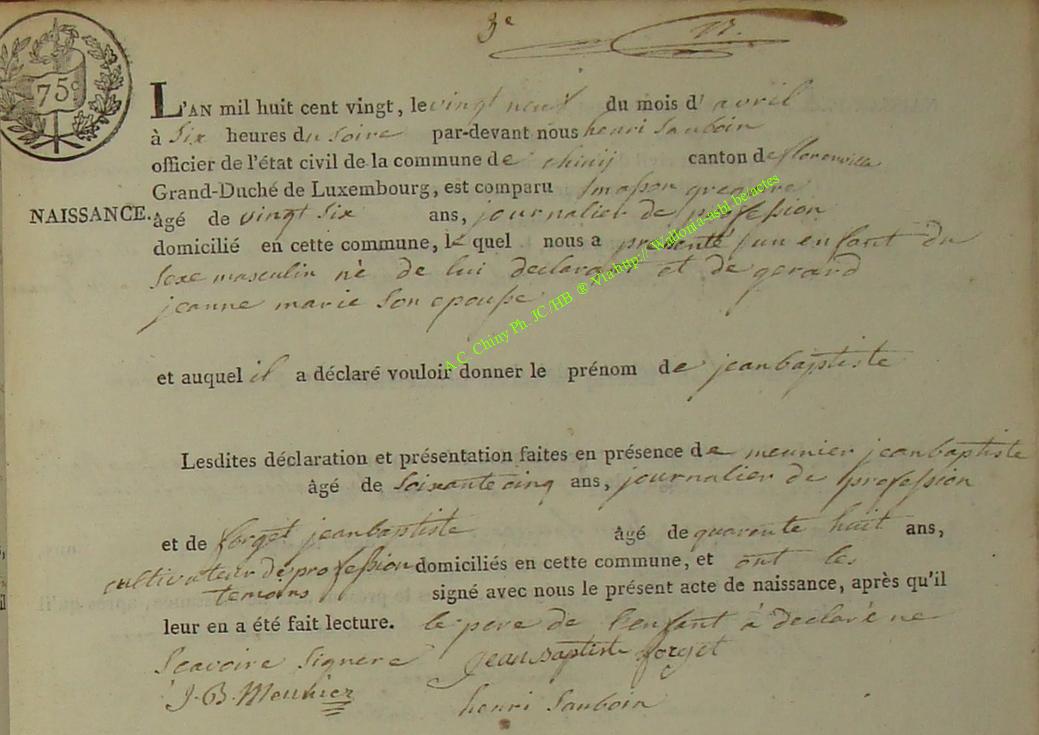 3e
75c
L'AN mil huit cent vingt, le vingt neuf du mois d' avril
à Six heures du Soire par-devant nous henri Sauboin
officier de l'état civil de la commune de chinij canton de florenville
Grand-Duché de Luxembourg, est comparu Smasson gregoire
NAISSANCE. âgé de vingt Six ans, journalier de profession
domicilié en cette commune, le quel nous a presenté un enfant du
Sexe masculin nè de lui declarant et de gerard
jeanne marie Son epouse
A.C. Chiny Ph. JC /HB ® Via http:// Wallonia-asbl.be/actes
et auquel il a déclaré vouloir donner le prénom de jeanbaptiste
Lesdites déclaration et présentation faites en présence de meunier jeanbaptiste
âgé de Soixante cinq ans, journalier de profession
et de forget jeanbaptiste âgé de quarente huit ans,
cultivateur de profession domiciliés en cette commune, et ont les
temoins signé avec nous le présent acte de naissance, après qu'il
leur en a été fait lecture. le pere de l'enfant à declaré ne
Scavoire Signere jean baptiste forget
J-B-Meunier
henri Sauboin